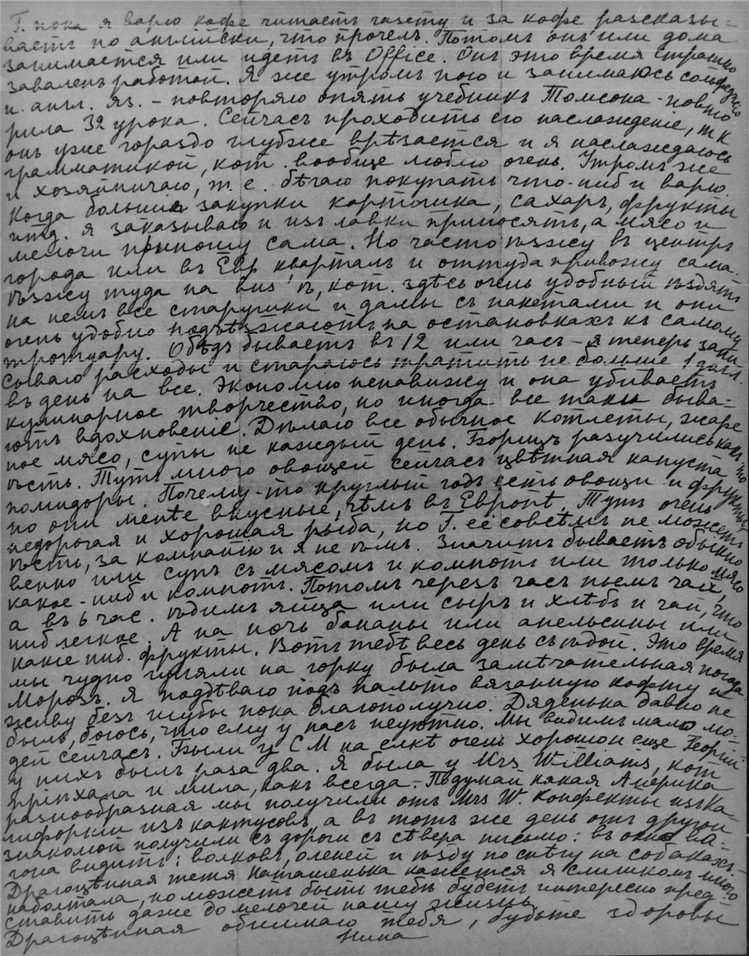 Г. пока я варю кофе читаетъ газету и за кофе разсказы=
ваетъ по английски, что прочелъ. Потомъ онъ или дома
занимается или идетъ въ Office. Онъ это время страшно
заваленъ работой. Я же утромъ пою и занимаюсь сольфеджіо
и англ. яз. – повторяю опять учебникъ Томсона – повто
рила 32 урока. Сейчасъ проходить его наслажденіе, т к
онъ уже гораздо глубже врѣзается и я наслаждаюсь
грамматикой, кот. вообще люблю очень. Утромъ же
и хозяйничаю, т. е. бѣгаю покупать что-ниб и варю
Когда большия закупки картошка, сахаръ, фрукты
итд. я заказываю и изъ лавки приносятъ, а мясо и
мелочи приношу сама. Но часто ѣзжу въ центръ
города или въ Евр. кварталъ и оттуда привожу сама.
ѣзжу туда на bus'ѣ, кот. здѣсь очень удобный ѣздятъ
на немъ все старушки и дамы съ пакетами и они
очень удобно подъѣзжаютъ на остановкахъ къ самому
тротуару. Обѣдъ бываетъ въ 12 или часъ – я теперь запи
сываю расходы и стараюсь тратить не больше 1 долл.
въ день на все. Экономию ненавижу и она убиваетъ
кулинарное творчество, но иногда все таки быва-
ютъ вдохновеніе. Дѣлаю все обычное котлеты, жаре
ное мясо, супы не каждый день. Борщъ разучились какъ то
ѣсть. Тутъ много овощей сейчасъ цвѣтная капуста
помидоры. Почему-то круглый годъ есть овощи и фрукты
но они менѣе вкусные, чѣмъ въ Европѣ. Тутъ очень
недорогая и хорошая рыба, но Г. ее совсѣмъ не можетъ
ѣсть, за компанию и я не ѣмъ. Значитъ бываетъ обыкно
венно или супъ съ мясомъ и компотъ или только мясо
какое-ниб и компотъ. Потомъ черезъ часъ пьемъ чай,
а въ 6 час. ѣдимъ яйца или сыръ и хлѣбъ и чай, что
ниб легкое. А на ночь бананы или апельсины или
какие ниб. фрукты. Вотъ тебѣ весь день съ ѣдой. Это время
мы чудно гуляли на горку была замѣчательная погода
Морозъ. Я поддѣваю подъ пальто вязанную кофту и
живу безъ шубы пока благополучно. Дяденька давно не
былъ, боюсь, что ему у насъ неуютно. Мы видимъ мало лю-
дей сейчасъ. Были у СМ на елкѣ очень хорошой еще Георгий
у нихъ былъ раза два. Я была у Mrs Williams, кот
пріѣхала и мила, какъ всегда. – Подумай какая Америка
разнообразная мы получили отъ Mrs W. Конфекты изъ Ка-
лифорнии изъ кактусовъ а въ тотъ же день отъ другой
знакомой получили съ дороги съ сѣвера письмо: въ окно ва-
гона видитъ: волковъ, оленей и ѣзду по снѣгу на собакахъ –
Драгоцѣнная тетя Наташенька кажется я слишкомъ много
наболтала, но можетъ быть тебѣ будетъ интересно пред
ставить даже до мелочей нашу жизнь.
Драгоцѣнная обнимаю тебя, будьте здоровы
Нина